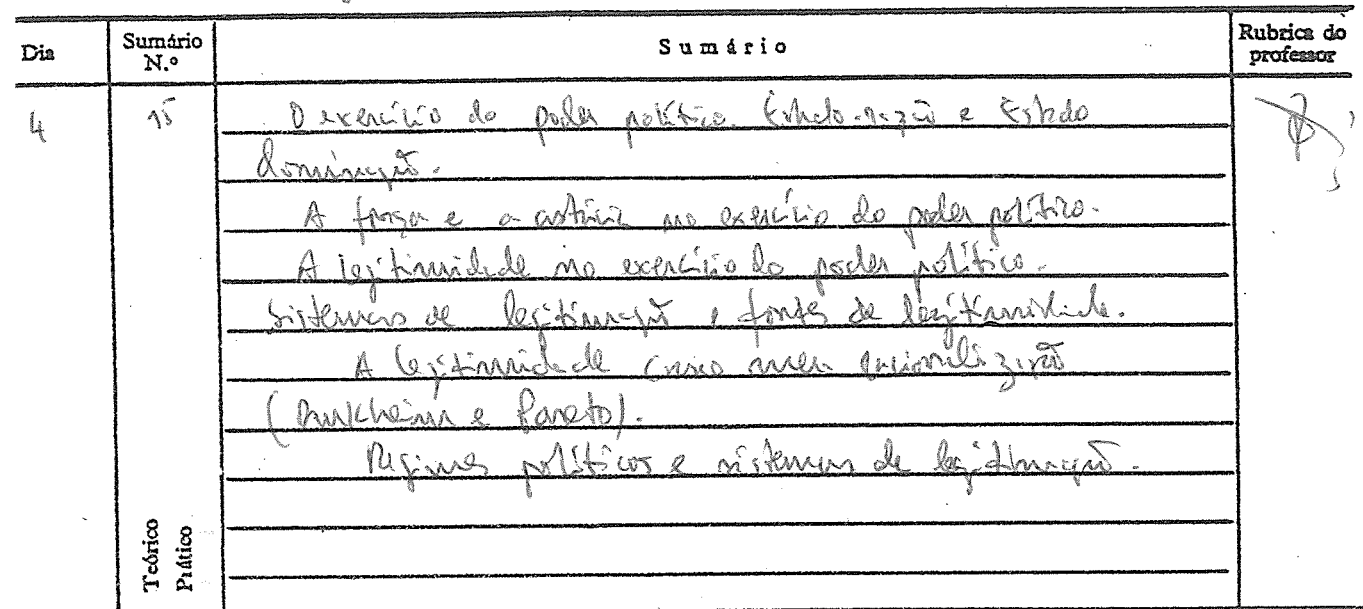 Dia Sumário N.º Sumário Rubrica do professor
4 15 O exercício do poder político. Estado-nação e Estado
dominação.
A força e a astúcia no exercício do poder político.
A legitimidade no exercício do poder político.
Sistemas de legitimação e fontes de legitimidade.
A legitimidade como mera racionalização
(Durkheim e Pareto).
Regimes políticos e sistemas de legitimação.
Teórico
Prático